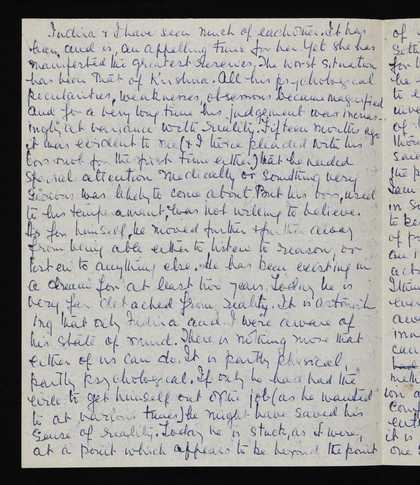 Indira & I have seen much of eachother. It has
been, and is, an appalling time for her. Yet she has
manifested the greatest sereness. The worst situation
has been that of Krishna. All his psychological
peculiarities, weaknesses, obsessions became magnified
and for a very long time his judgement was increas-
ingly at variance with reality. Fifteen months ago
it was evident to me (& I three pleaded with his
boss not for the first time either) that he needed
special attention medically or something very
serious was likely to come about. But his boss, used
to his temperament, was not willing to believe.
As for himself, he moved further & further away
from being able either to listen to reason, or
listen to anything else. He has been existing in
a dream for at least two years. Today he is
very far detached from reality. It is astonish
ing that only Indira and I were aware of
his state of mind. There is nothing more that
either of us can do. It is partly physical,
partly psychological. If only he had had the
to get himself out of the job (as he wanted
to at various times) he might have saved his
sense of reality. Today he is stuck, as it were,
at a point which appears to be beyond the point